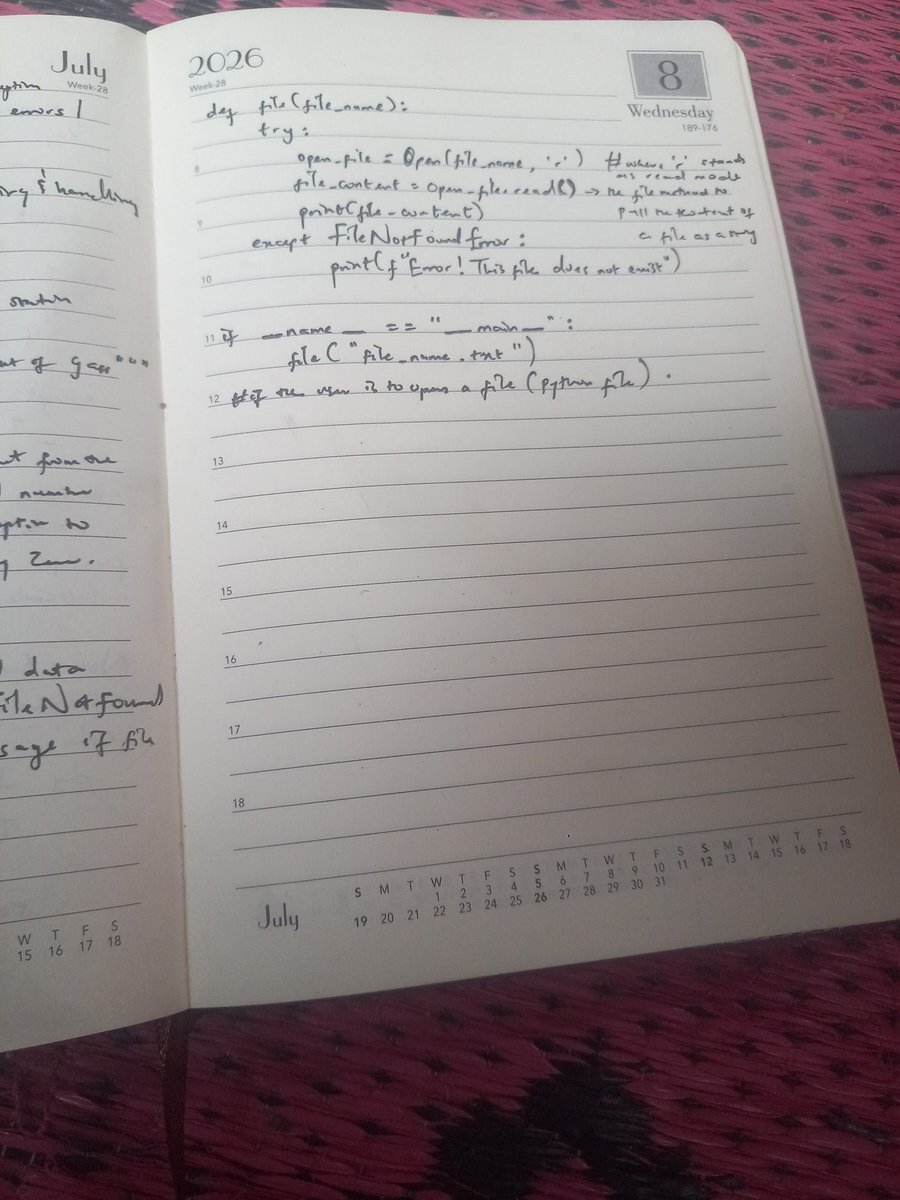 July
Week-28
errors !
& handling
of Gas """
from the
number
to
Zero.
data
FileNotFound
if file
W T F S
15 16 17 18
2026
Week-28
8
Wednesday
189-176
def file(file_name):
try:
8 open_file = Open(file_name, 'r') # where 'r' stands
as read mode
file_content = open_file.read() → the file method to
pull the content of
a file as a
9 print(file_content)
except FileNotFoundError:
10 print(f"Error! This file does not exist")
11 if __name__ == "__main__":
file("file_name.txt")
12 # if the user is to open a file (python file).
13
14
15
16
17
18
July
S M T W T F S S M T W T F S S M T W T F S
1 2 3 4 5 6 7 8 9 10 11 12 13 14 15 16 17 18
19 20 21 22 23 24 25 26 27 28 29 30 31